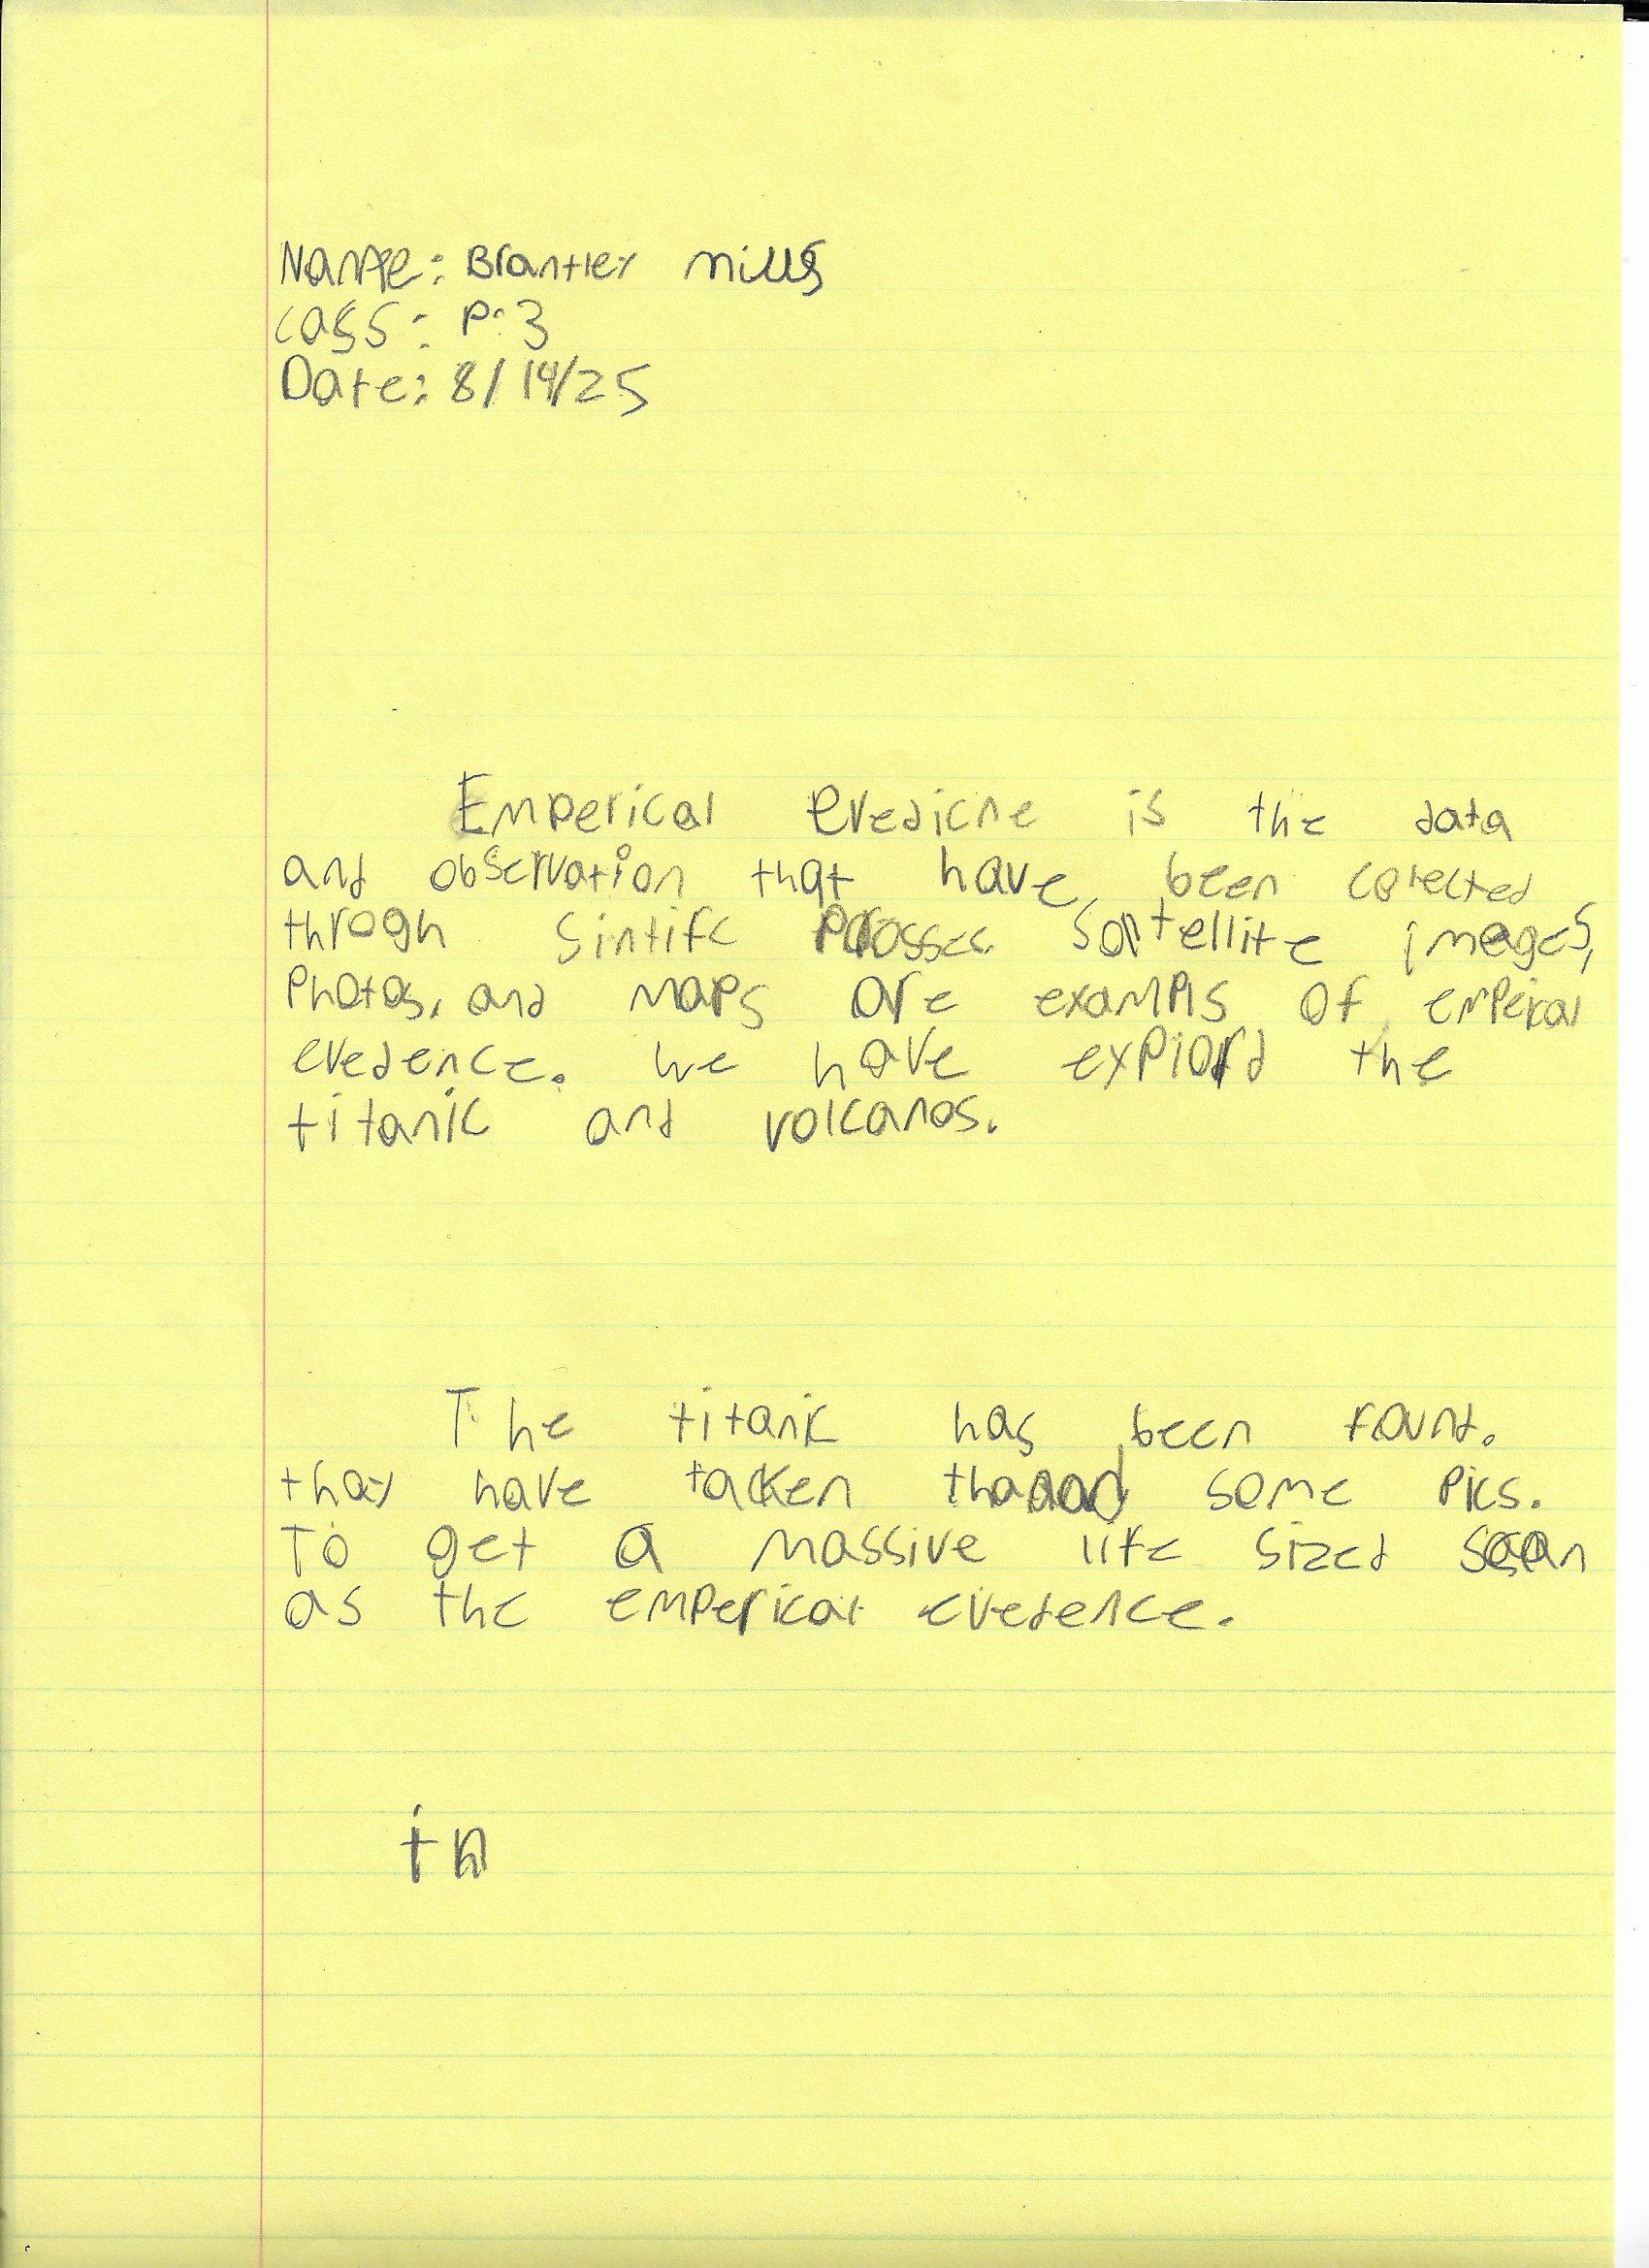 Name: Brantley mills
cass: P:3
Date: 8/14/25
Emperical evedicne is the data
and observation that have been corected
throgh sintifc prosses. Sattellite images,
Photos, and maps are exampls of emperical
evedence. we have explord the
titanic and volcanos.
The titanic has been found.
thay have tacken some pics.
To get a massive life sized scan
as the emperical evedence.
th